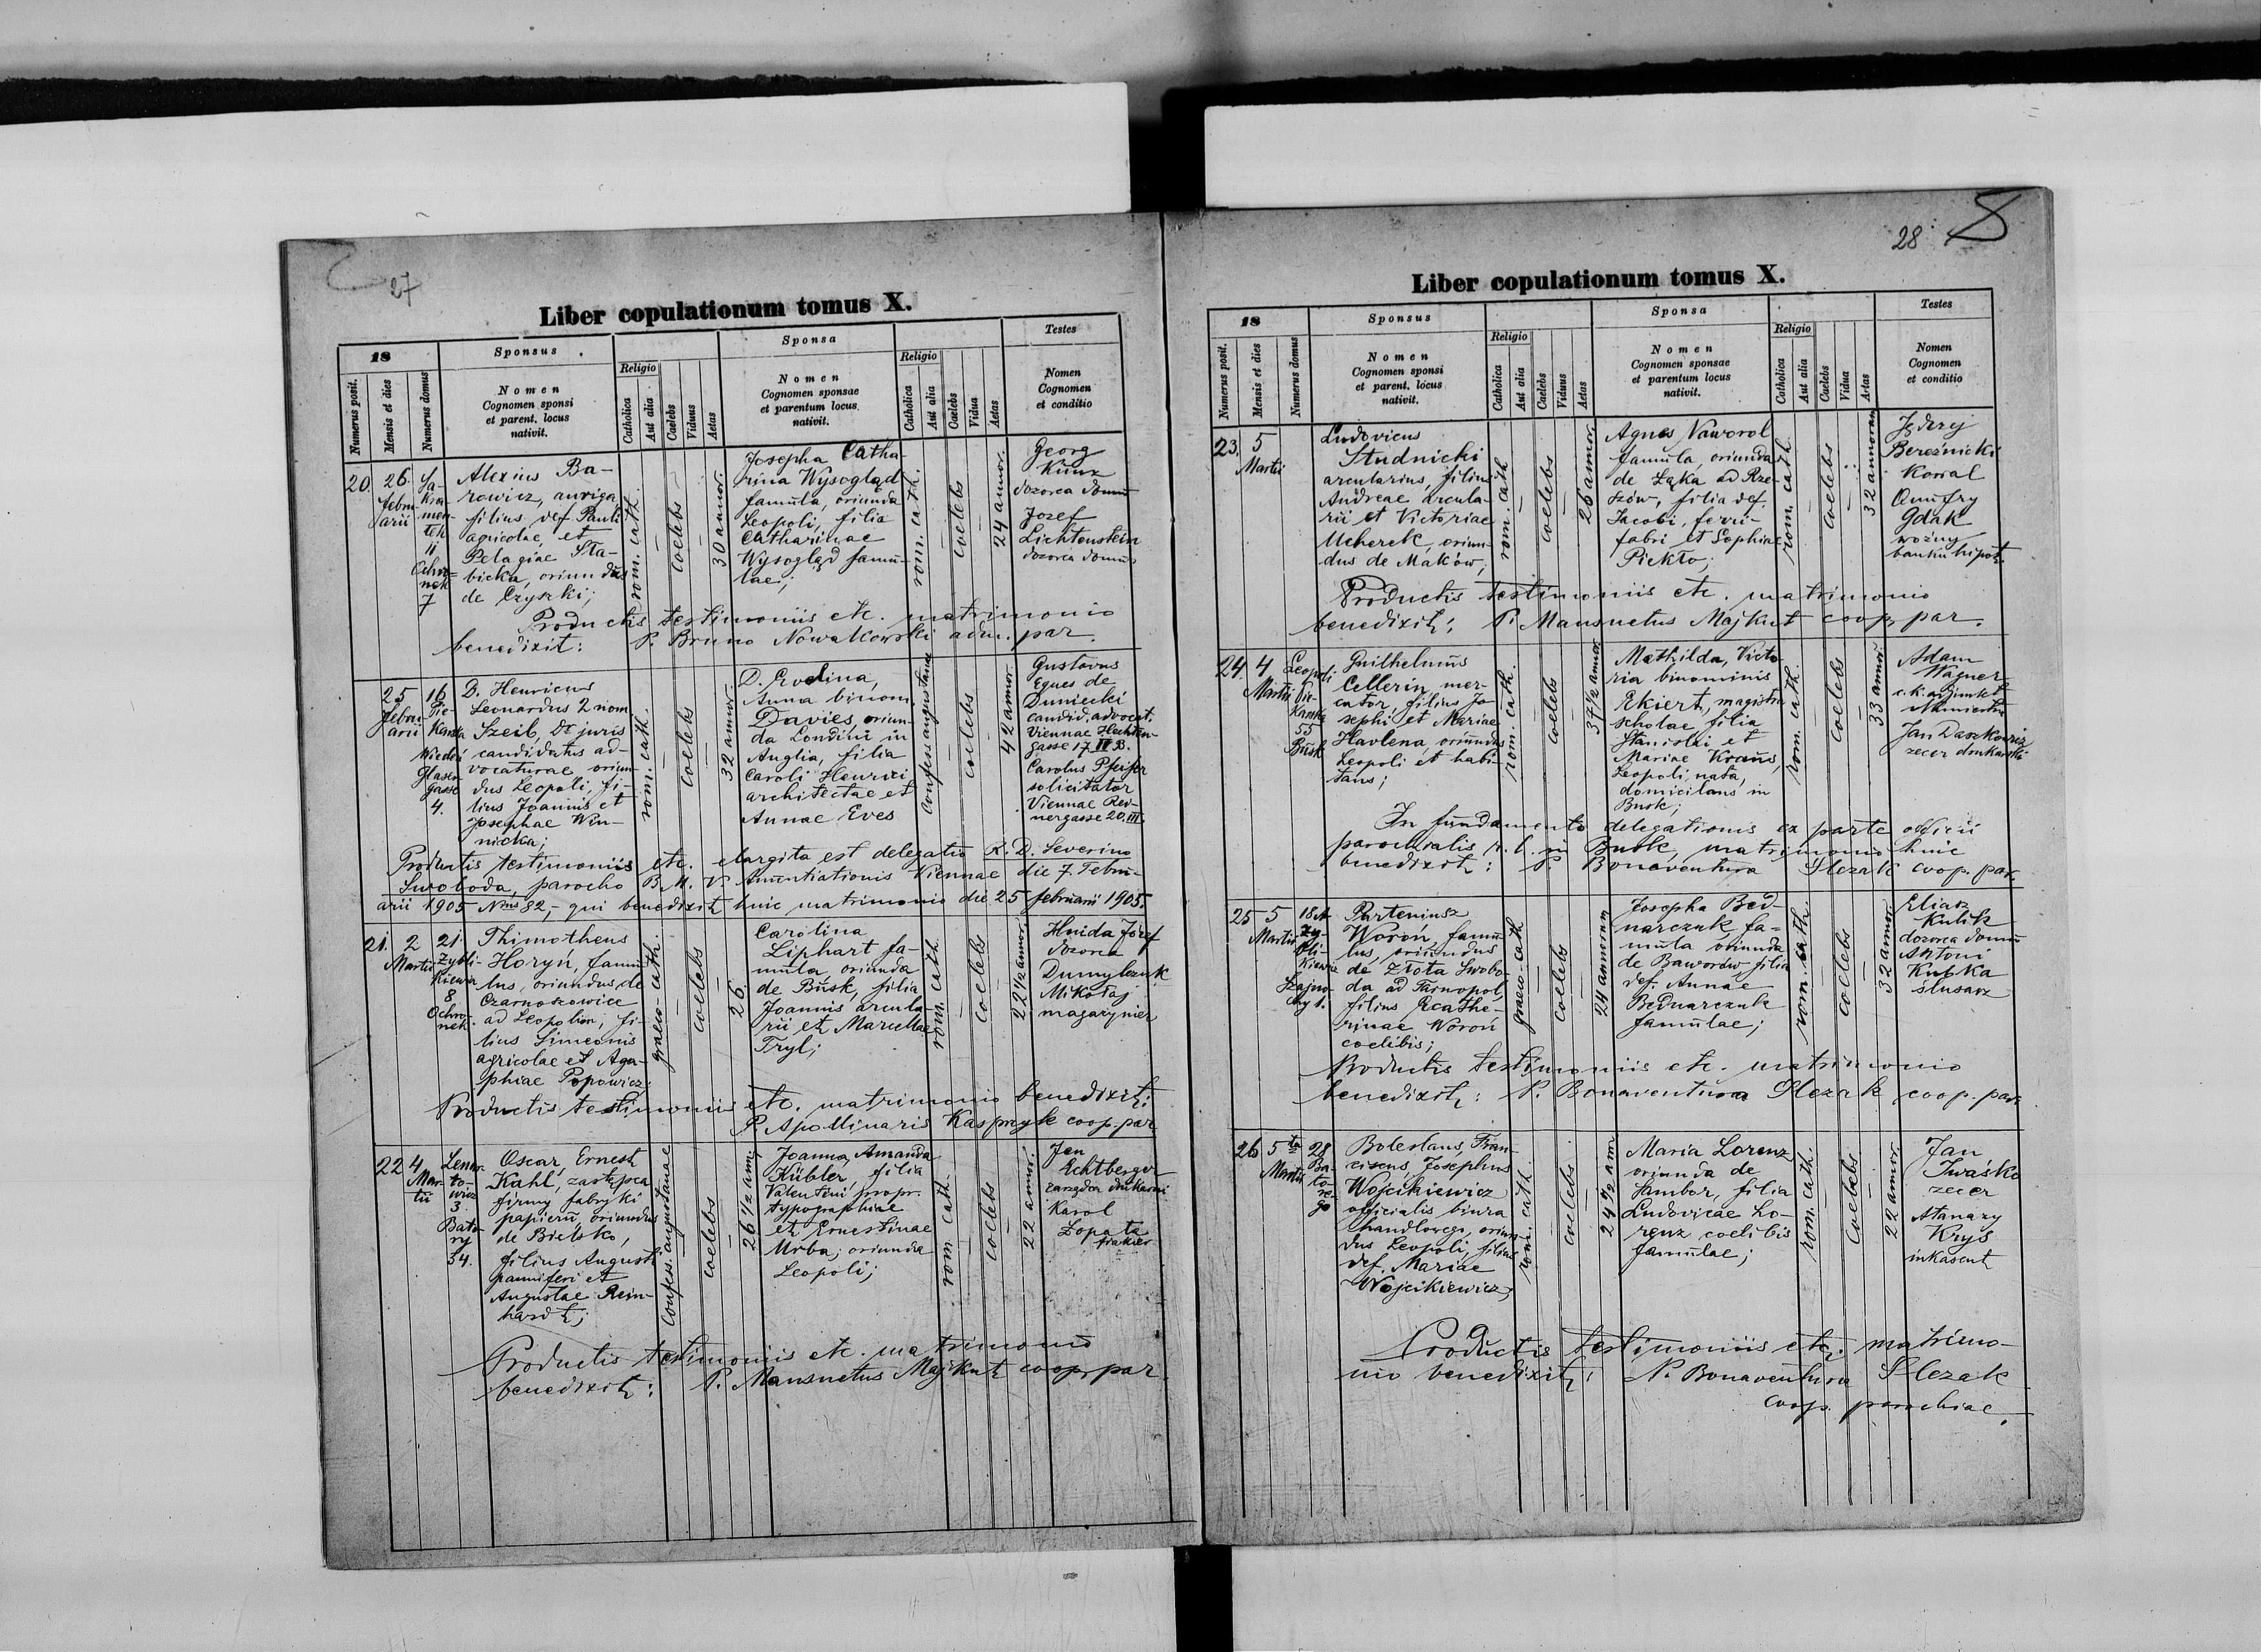 27
Liber copulationum tomus X.
18
Sponsus
Sponsa
Testes
Numerus posit.
Mensis et dies
Numerus domus
Nomen
Cognomen sponsi
et parent. locus
nativit.
Religio
Catholica
Aut alia
Caelebs
Viduus
Aetas
Nomen
Cognomen sponsae
et parentum locus
nativit.
Religio
Catholica
Aut alia
Caelebs
Vidua
Aetas
Nomen
Cognomen
et conditio
20.
26.
Febru-
arii
Sa-
kra-
men-
tek
11
Ochro-
nek
7
Alexius Ba-
rowicz, auriga,
filius def. Pauli
agricolae, et
Pelagiae Sta-
bicka, oriundus
de Czyszki;
rom. cath.
coelebs
30 annor.
Josepha Catha-
rina Wysogląd
famula, oriunda
Leopoli, filia
Catharinae
Wysogląd famu-
lae;
rom. cath.
coelebs
24 annor.
Georg
Kunz
dozorca domu
Jozef
Lichtenstein
dozorca domu
Productis testimoniis etc. matrimonio
benedixit: P. Bruno Nowakowski adm. par.
25
Febru-
arii
16
Pie-
karska
Wiedeń
Glasen
gasse
4.
D. Henricus
Leonardus 2 nom
Szeib, Dr juris
candidatus ad-
vocaturae oriun-
dus Leopoli, fi-
lius Joannis et
Josephae Win-
nicka;
rom. cath.
coelebs
32 annor.
D. Evelina,
Anna binom.
Davies, oriun-
da Londini in
Anglia, filia
Caroli Henrici
architectae et
Annae Eves
Confess. augustanae
coelebs
42 annor.
Gustavus
Eques de
Duniecki
candid. advocat.
Viennae Hechten-
gasse 17 IV B.
Carolus Pfeifer
solicitator
Viennae Rei-
nergasse 20. III
Productis testimoniis etc. elargita est delegatio R. D. Severino
Swoboda, parocho B. M. V. Anuntiationis Viennae die 7. Febru-
arii 1905 Nrus 82, - qui benedixit huic matrimonio die 25 februarii 1905.
21.
2
Martii
21.
Zybli-
kiewicza
8
Ochro-
nek
Thimotheus
Horyń, famu-
lus, oriundus de
Czarnoszowice
ad Leopolim, fi-
lius Simeonis
agricolae et Aga-
phiae Popowicz
graeco-cath.
coelebs
26
Carolina
Liphart fa-
mula, oriunda
de Busk, filia
Joannis arcula-
rii et Marcellae
Fryl;
rom. cath.
coelebs
22 1/2 annor.
Hnida Józef
dozorca
Dumylczuk
Mikołaj
magazynier
Productis testimoniis etc. matrimonio benedixit:
P. Apollinaris Kasprzyk coop. par.
22
4
Mar-
tii
Lenar-
to-
wicz
3.
Bato-
ry
34.
Oscar, Ernest
Kahl, zastępca
firmy fabryki
papieru, oriundus
de Bielsko,
filius Augusti
panniferi et
Augustae Rein-
hardt;
Confess. augustanae
coelebs
26 1/2 ann.
Joanna, Amanda
Kübler, filia
Valentini propr.
typographiae
et Ernestinae
Urba; oriunda
Leopoli;
rom. cath.
coelebs
22 annor.
Jan
Echtberger
zarządca drukarni
Karol
Łopata
fiakier
Productis testimoniis etc. matrimonio
benedixit: P. Mansuetus Majkut coop. par.
28
8
Liber copulationum tomus X.
18
Sponsus
Sponsa
Testes
Numerus posit.
Mensis et dies
Numerus domus
Nomen
Cognomen sponsi
et parent. locus
nativit.
Religio
Catholica
Aut alia
Caelebs
Viduus
Aetas
Nomen
Cognomen sponsae
et parentum locus
nativit.
Religio
Catholica
Aut alia
Caelebs
Vidua
Aetas
Nomen
Cognomen
et conditio
23.
5
Martii
Ludovicus
Studnicki
arcularius, filius
Andreae arcula-
rii et Victoriae
Ucherek, oriun-
dus de Maków;
rom. cath
coelebs
26 annor.
Agnes Naworol
famula, oriunda
de Łąka ad Rze-
szów, filia def.
Jacobi, ferri-
fabri et Sophiae
Piekło;
rom. cath.
coelebs
32 annorum
Jędrzej
Bereźnicki
Kowal
Onufry
Gdak
woźny
banku hipot.
Productis testimoniis etc. matrimonio
benedixit: P. Mansuetus Majkut coop. par.
24.
4
Martii
Leopoli
Pie-
karska
55
Busk
Guilhelmus
Cellerin, mer-
cator, filius Jo-
sephi et Mariae
Havlena, oriundus
Leopoli et habi-
tans;
rom. cath.
coelebs
34 1/2 annor.
Mathilda, Victo-
ria binominis
Ekiert, magistra
scholae, filia
Stanislai et
Mariae Kraus,
Leopoli nata,
domicilans in
Busk;
rom. cath.
coelebs
33 annor.
Adam
Wagner
c. k. adjunkt
Jan Daszkowicz
zecer drukarski
In fundamento delegationis ex parte officii
parochialis r. l. in Busk, matrimonio huic
benedixit: P. Bonaventura Slezak coop. par.
25
5
Martii
18 A
Zy-
bli-
kiewicz
Szajno-
chy 1.
Parteniusz
Woroń, famu-
lus, oriundus
de Złota Swobo-
da ad Tarnopol,
filius Ecathe-
rinae Woroń
coelibis;
graeco-cath
coelebs
24 annorum
Josepha Bed-
narczuk, fa-
mula oriunda
de Baworów, filia
def. Annae
Bednarczuk
famulae;
rom. cath.
coelebs
32 annor.
Eliasz
Kulik
dozorca domu
Antoni
Kubka
ślusarz
Productis testimoniis etc. matrimonio
benedixit: P. Bonaventura Slezak coop. par.
26
5ta
Martii
28
Ba-
to-
re-
go
Boleslaus, Fran-
ciscus, Josephus
Wojcikiewicz
officialis biura
handlowego, oriun-
dus Leopoli, filius
def. Mariae
Wojcikiewicz;
rom. cath.
coelebs
24 1/2 ann
Maria Lorenz
oriunda de
Sambor, filia
Ludovicae Lo-
renz coelibis
famulae;
rom. cath.
coelebs
22 annor.
Jan
Iwaśko
zecer
Atanazy
Kryś
inkasent
Productis testimoniis etc. matrimo-
nio benedixit: P. Bonaventura Slezak
coop. parochiae.